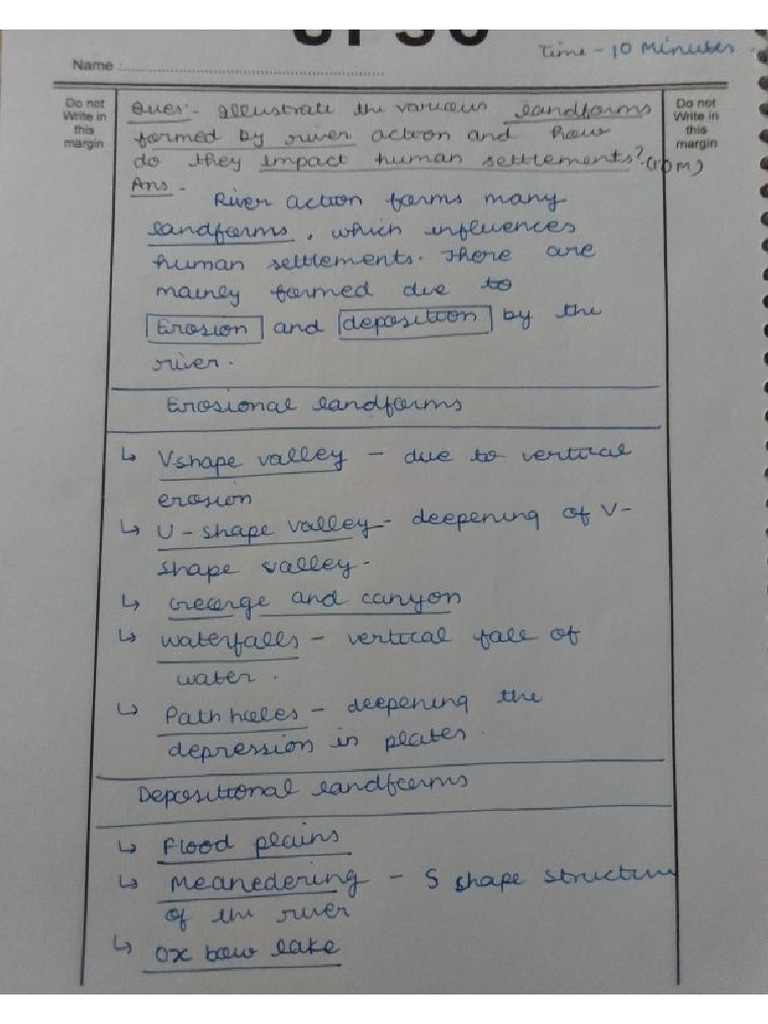 UPSC
Time - 10 Minutes
Name :
Do not
Write in
this
margin
Do not
Write in
this
margin
Ques:- Illustrate the various landforms
formed by river action and how
do they impact human settlements? (10M)
Ans -
River action forms many
landforms, which influences
human settlements. There are
mainly formed due to
Erosion and deposition by the
river.
Erosional landforms
↳ V shape valley - due to vertical
erosion
↳ U - shape valley - deepening of V-
shape valley.
↳ George and canyon
↳ Waterfalls - vertical fall of
water.
↳ Path holes - deepening the
depression in plates.
Depositional landforms
↳ Flood plains
↳ Meanedering - S shape structure
of the river
↳ Ox bow lake